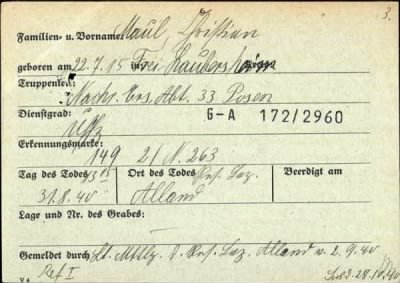 3.
Familien- u. Vorname: Maul, Christian
geboren am 22.7.15 in: Frei Laubersheim
Truppenteil:
Nachr. Ers. Abt. 33 Posen
Dienstgrad: G-A 172/2960
Uffz
Erkennungsmarke:
149 2/N. 263
Tag des Todes Ort des Todes Res. Laz. Beerdigt am
31.8.40 Alland
Lage und Nr. des Grabes:
—
Gemeldet durch Lt. Mttlg. d. Res. Laz. Alland v. 2.9.40
Ref I